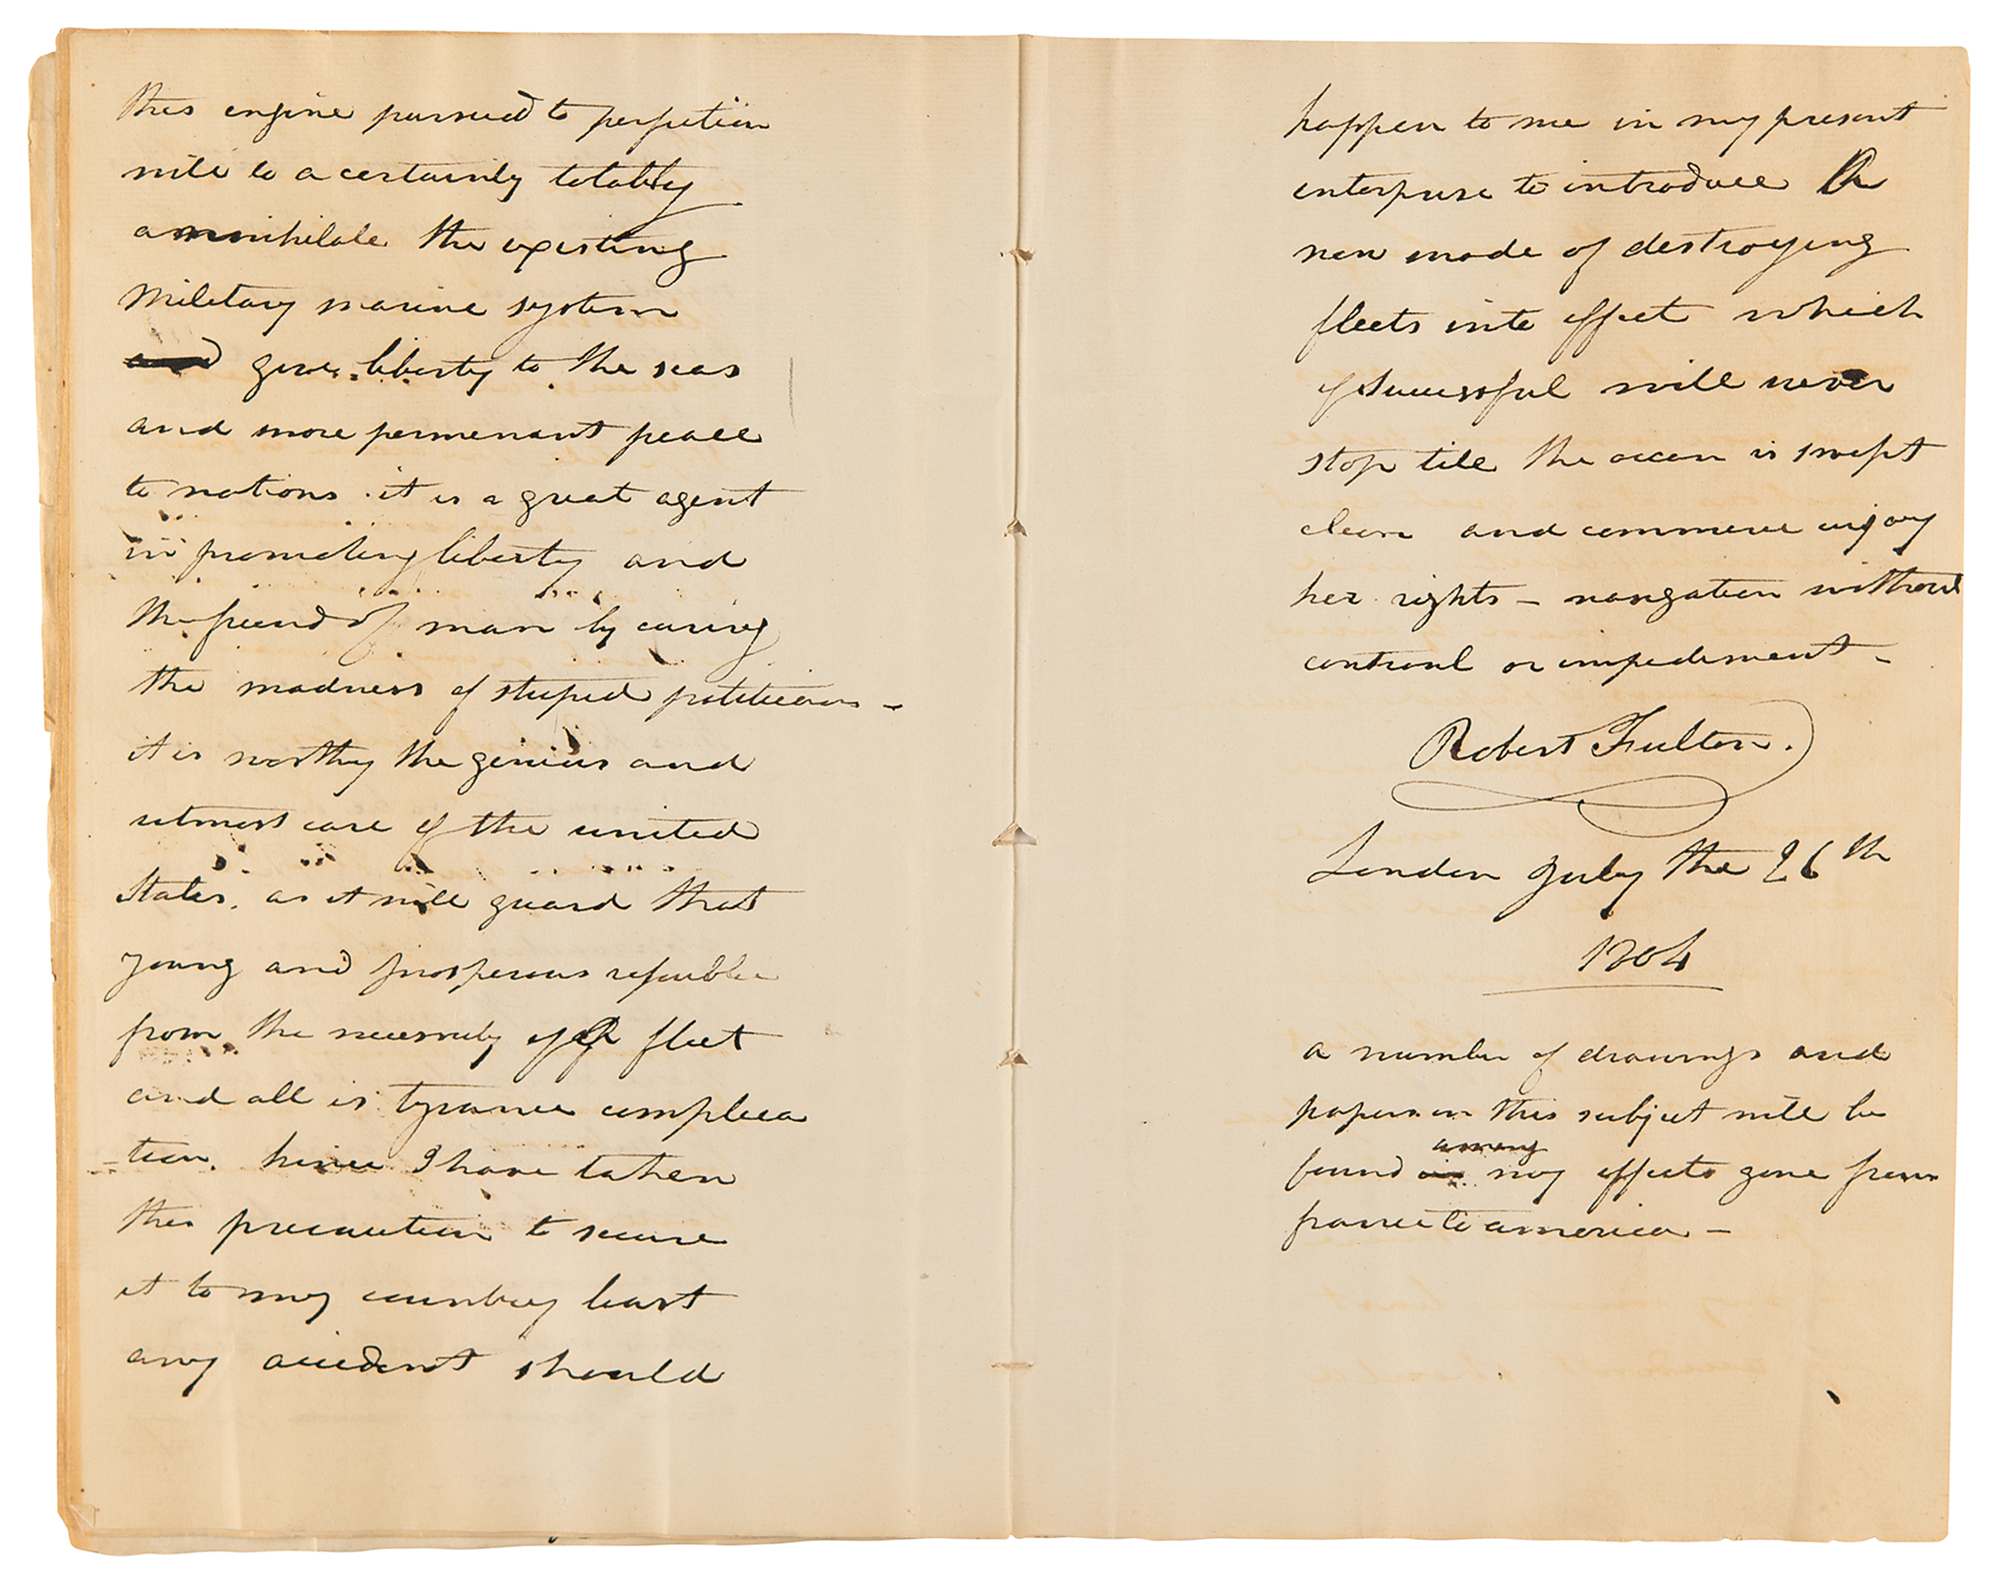 this engine pursued to perfection
will to a certainty totably
annihilate the existing
Military marine system
and give liberty to the seas
and more permenant peace
to nations. it is a great agent
in promoting liberty and
the friend of man by curing
the madness of stupid politicians -
it is worthy the genius and
utmost care of the united
States. as it will guard that
young and prosperous republic
from the necessity of a fleet
and all is tyrance complica
=tion. hence I have taken
this precaution to secure
it to my country least
any accident should
happen to me in my present
enterprise to introduce a
new mode of destroying
fleets into effect which
if successful will never
stop till the ocean is swept
clean and commerce injoy
her rights — navigation without
controul or impediment —
Robert Fulton.
London July the 26th
1804
a number of drawings and
papers on this subject will be
among
found in my effects gone from
france to america —